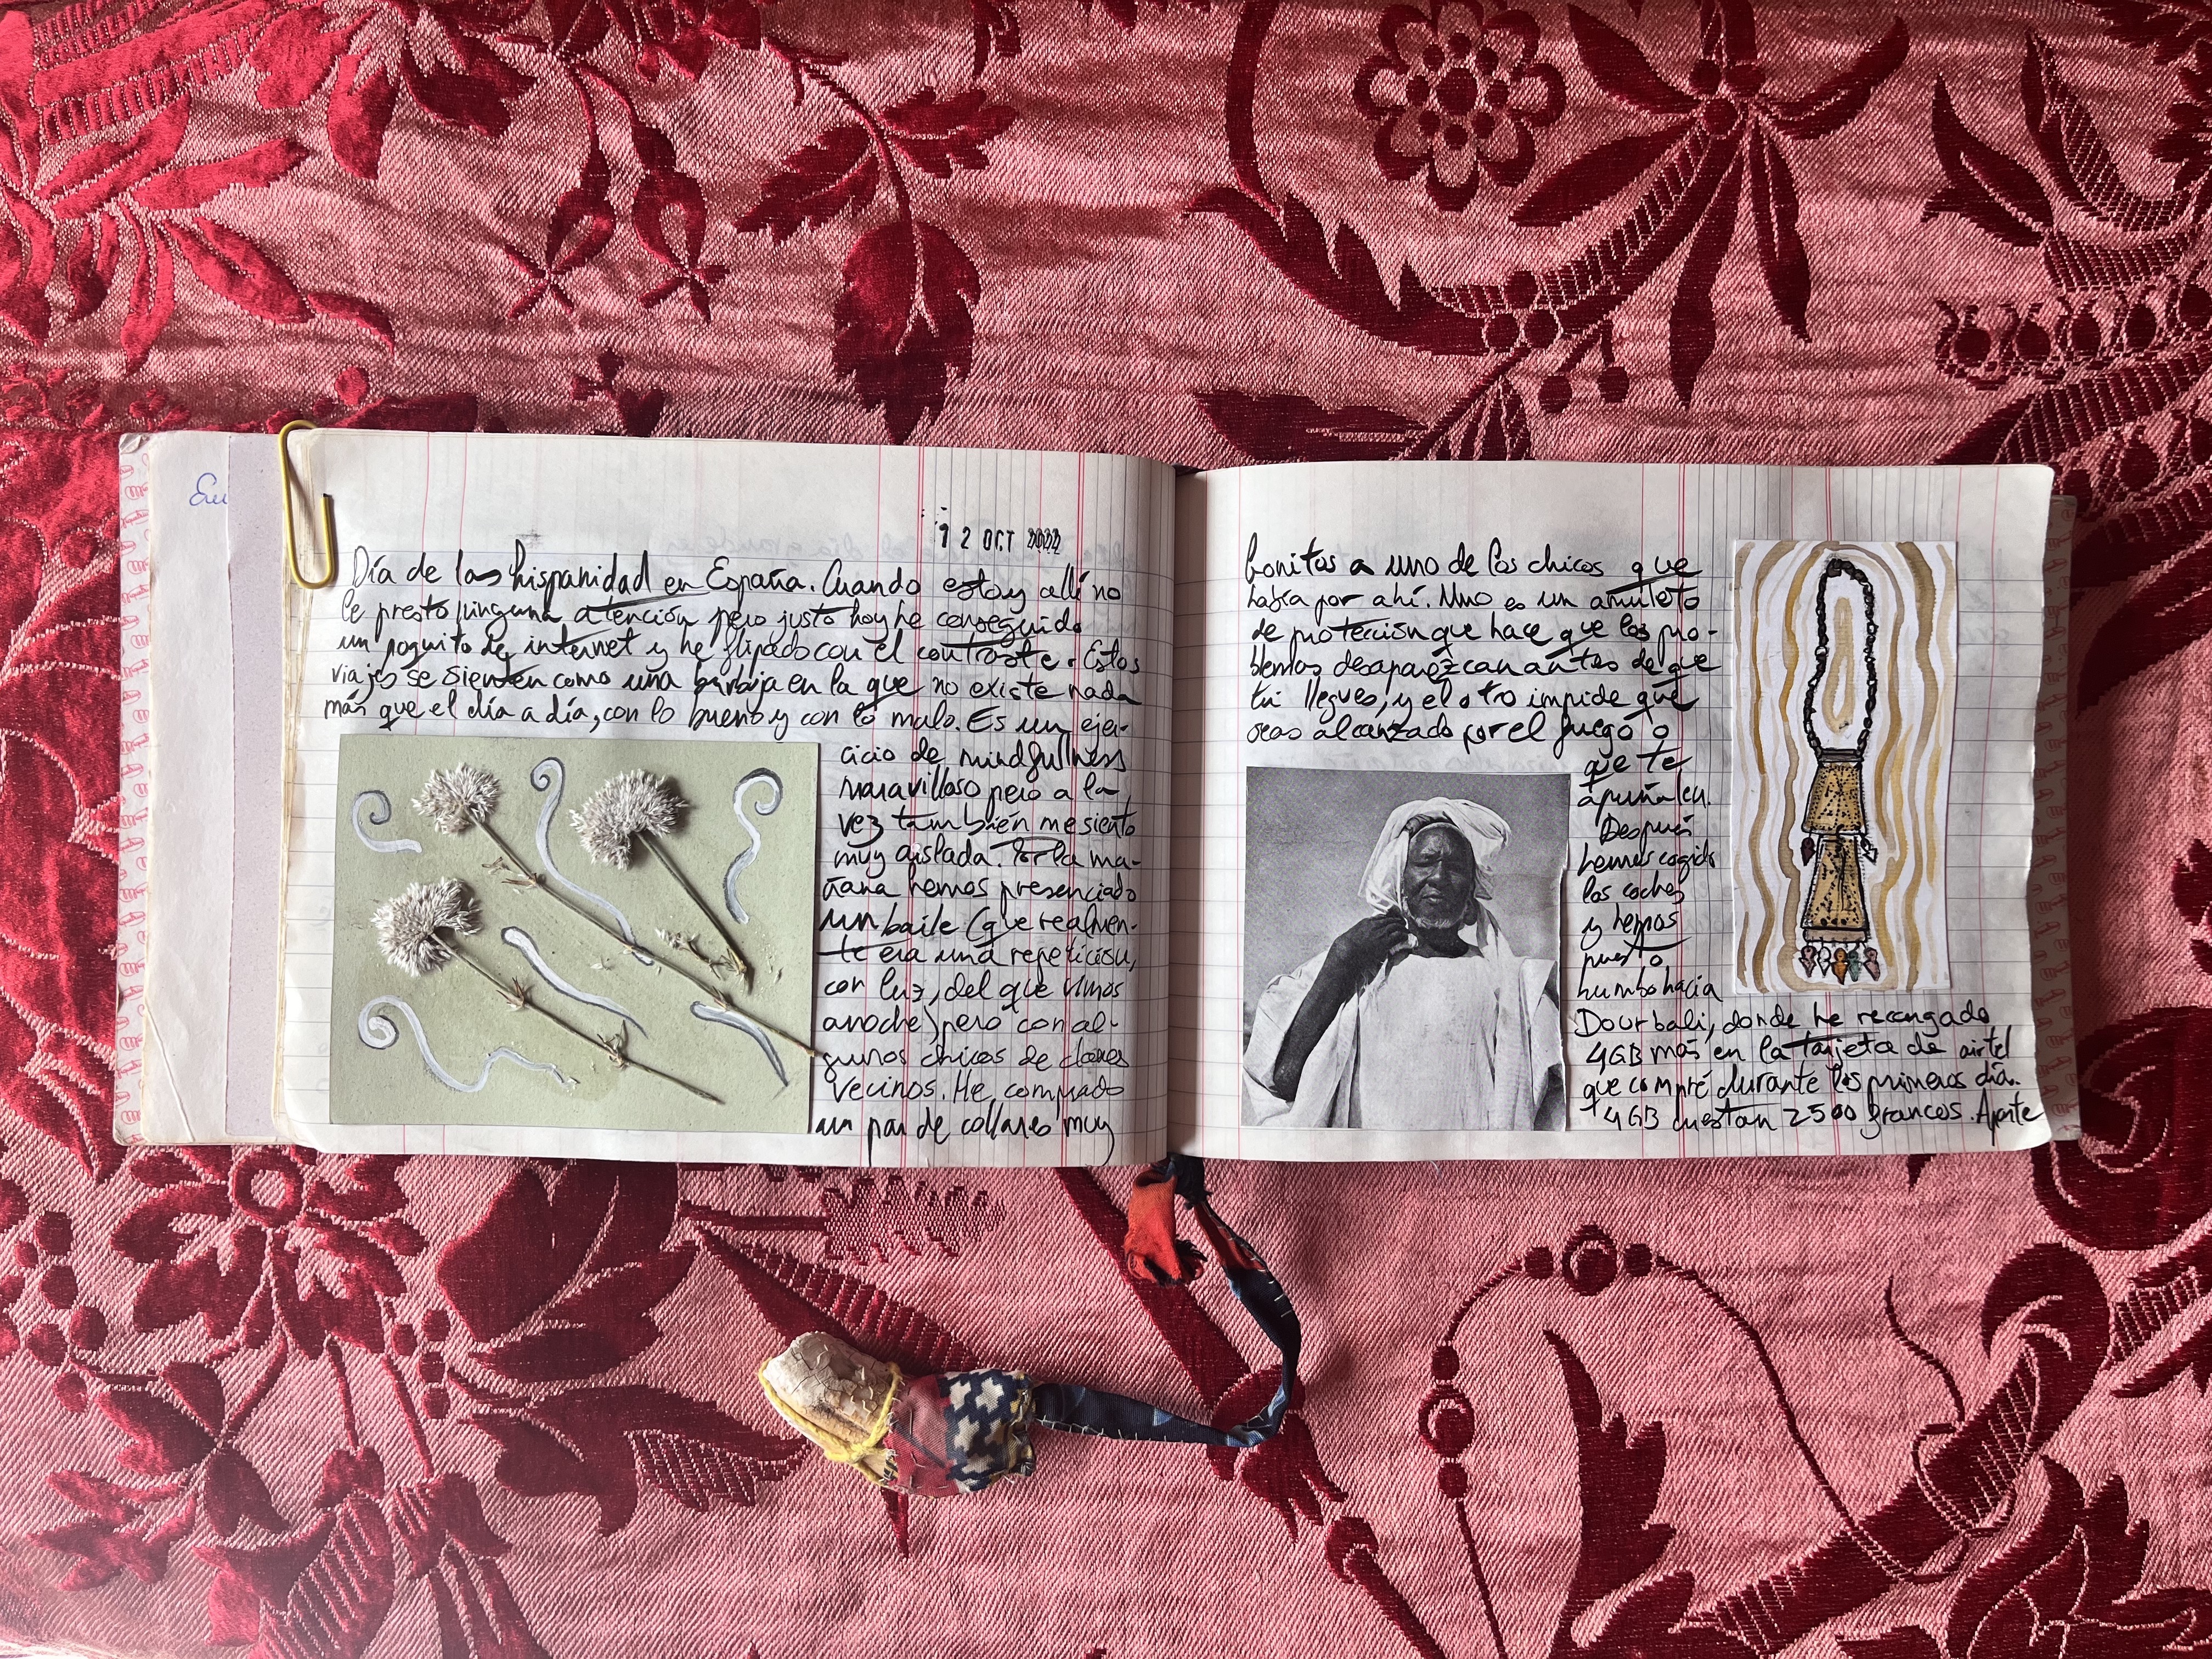 Eu
12 OCT 2022
Día de la hispanidad en España. Cuando estoy allí no
le presto ninguna atención pero justo hoy he conseguido
un poquito de internet y he flipado con el contraste. Estos
viajes se sienten como una burbuja en la que no existe nada
más que el día a día, con lo bueno y con lo malo. Es un ejer-
cicio de mindfullness
maravilloso pero a la
vez también me siento
muy aislada. Por la ma-
ñana hemos presenciado
un baile (que realmen-
te era una repetición,
con luz, del que vimos
anoche) pero con al-
gunos chicos de clanes
vecinos. He comprado
un par de collares muy
bonitos a uno de los chicos que
había por ahí. Uno es un amuleto
de protección que hace que los pro-
blemas desaparezcan antes de que
tú llegues, y el otro impide que
seas alcanzado por el fuego o
que te
apuñalen.
Después
hemos cogido
los coches
y hemos
puesto
rumbo hacia
Dourbali, donde he recargado
4GB más en la tarjeta de airtel
que compré durante los primeros días.
4GB cuestan 2500 francos. Aparte